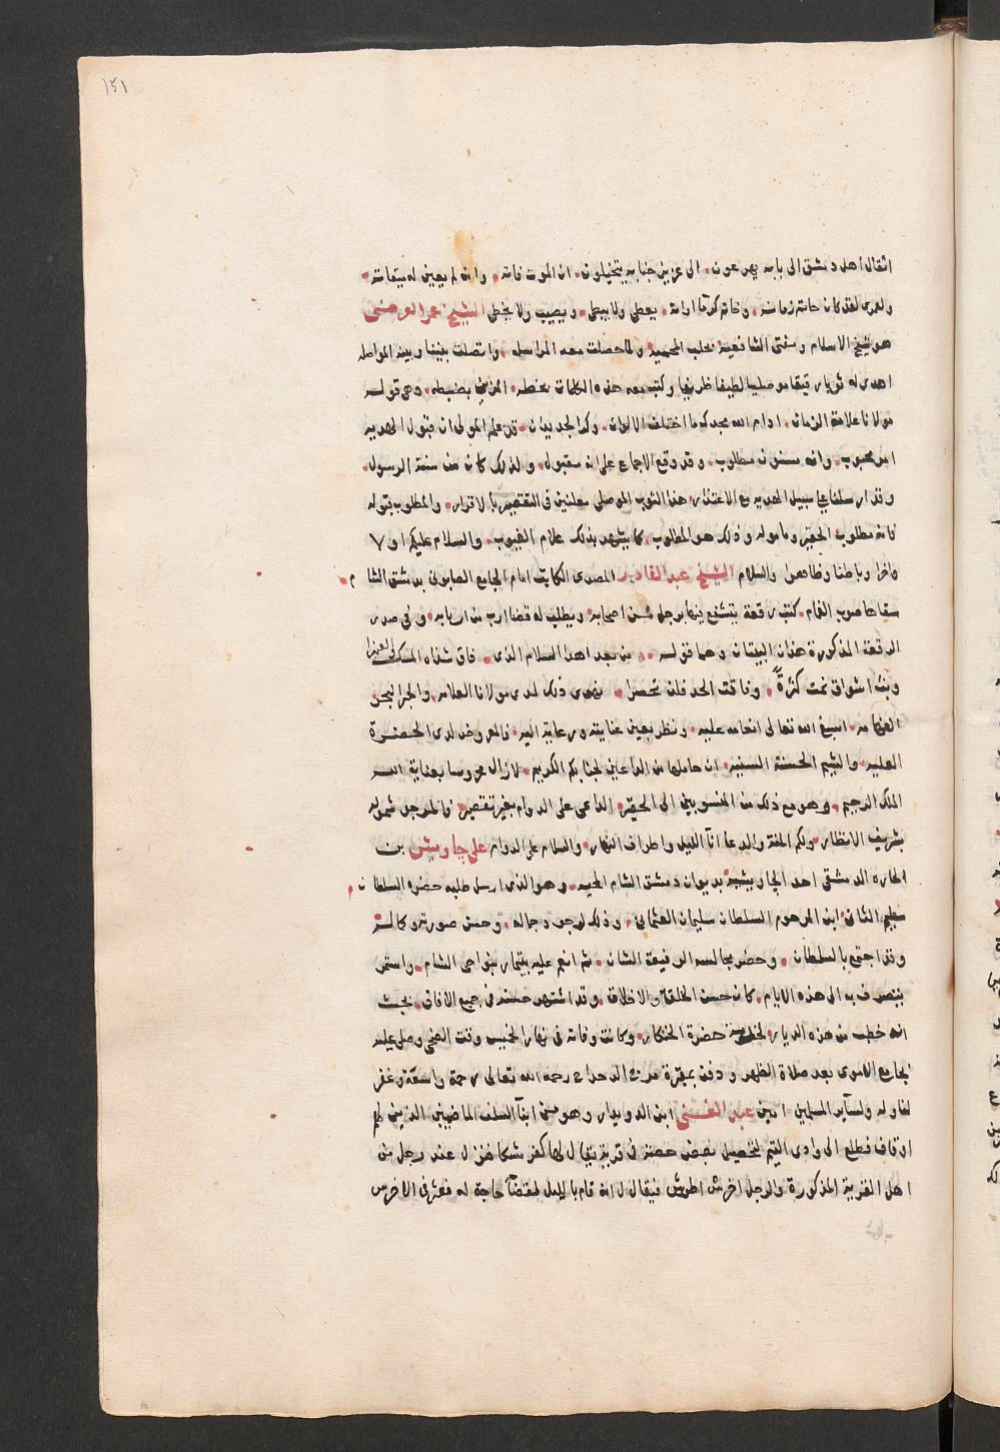 ١٥١
اثقال اهل دمشق الى بابه يهرعون. الى عزيز جنابه يتخيلون. ان الموت فاته. وانه لم يعين له ميقاته.
ولعمرى لقد كان حاتم زمانه. وخاتم كرما اوانه. يعطى ولا يبطى. ويصيب ولا يخطى الشيخ عمر العرضى
هو شيخ الاسلام ومفتى الشافعية بحلب المحمية ولما حصلت معه المراسله. واتصلت بيننا وبينه المواصله
اهدى له ثوبا رقيقا موصليا لطيفا ظريفا وكتب معه هذه الكلمات بخطه. المزين بضبطه. وهى قوله
مولانا علامة الزمان. ادام الله مجدكم ما اختلف الالوان. وكر الجديدان. قد علم المولى ان قبول الهديه
امر محبوب. وانه مسنون مطلوب. وقد وقع الاجماع على انه مقبول. ولذلك كان من سنة الرسول.
وقد ارسلنا على سبيل الهديه مع الاعتذار. هذا الثوب الموصلى معلنين فى التقصير بالاقرار. والمطلوب قبوله
فانه مطلوب الحقير ومأموله وذلك هو المطلوب. كما يشهد بذلك علام الغيوب. والسلام عليكم اولا
واخرا وباطنا وظاهرا والسلام الشيخ عبد القادر المصرى الكاتب امام الجامع الصابونى بدمشق الشام
سقاها صوب الغمام. كتب رقعة يتشفع فيها برجل من اصحابه ويطلب له قضا ارب من اربابه. وفى صدر
الرقعة المذكورة هذان البيتان وهما قوله . من بعد اهدا السلام الذى. فاق شذاه المسك
وبث اشواق نمت كثرة. وفاقت الحد فلن تحصرا. نهدى ذلك لدى مولانا العلامه. والحبر البحر
الفهامه. اسبغ الله تعالى انعامه عليه. ونظر بعين عنايته ورعايته اليه. فالمعروض لدى الحضرة
العليه. والشيم الحسنة السنيه. ان حاملها من الداعين لجنابكم الكريم. لازال محروسا بعناية الله
الملك الرحيم. وهو مع ذلك من المنسوبين الى الحقير. الداعى على الدوام بغير تقصير. فالمرجو شموله
بشريف الانظار. ولكم المنة والدعا انآ الليل واطراف النهار. والسلام على الدوام على جاويش بن
الحاره الدمشقى احد الجاويشية بديوان دمشق الشام المحميه. وهو الذى ارسل طلبه حضرة السلطان
سليم الثانى ابن المرحوم السلطان سليمان العثمانى. وذلك لوجود جماله. وحسن صورته وكماله
وقد اجتمع بالسلطان. وحضر مجالسه الرفيعة الشان. ثم انعم عليه بتيمار بنواحى الشام. واستمر
يتصرف به الى هذه الايام. كان حسن الخلقة والاخلاق. وقد اشتهر حسنه فى جميع الافاق. بحيث
انه خطب من هذه الديار. لخدمة حضرة الخنكار. وكانت وفاته فى نهار الخميس وقت الضحى وصلى عليه
بجامع الاموى بعد صلاة الظهر ودفن بمقبرة مرج الدحداح رحمه الله تعالى رحمة واسعة وغفر
لنا وله ولسآير المسلمين امين عبد الغنى ابن الدويدار وهو من ابنآ السلف الماضيين الذين لهم
اوقاف فطلع الى وادى التيم لتحصيل بعض حصته فى قرية يقال لها كفر مشكا فنزل عند رجل من
اهل القرية المذكورة والرجل اخرش اطروش فيقال ان انه قام بالليل لقضآ حاجة له فعثر فى الاخرس